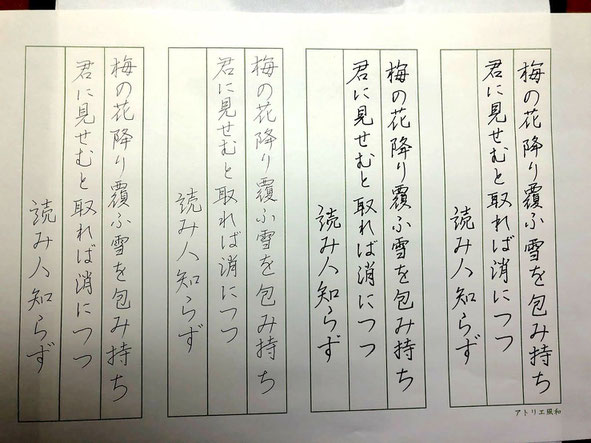 梅の花降り覆ふ雪を包み持ち
君に見せむと取れば消につつ
読み人知らず
梅の花降り覆ふ雪を包み持ち
君に見せむと取れば消につつ
読み人知らず
梅の花降り覆ふ雪を包み持ち
君に見せむと取れば消につつ
読み人知らず
梅の花降り覆ふ雪を包み持ち
君に見せむと取れば消につつ
読み人知らず
アトリエ風和